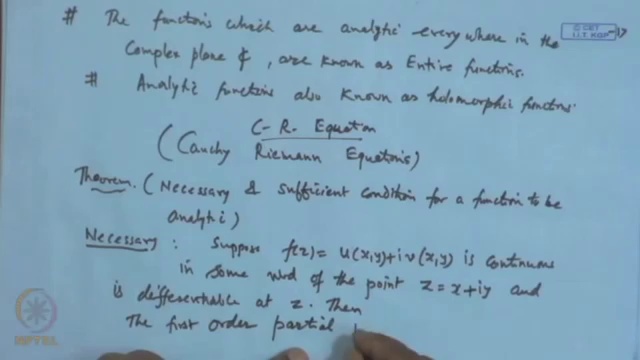 # The functions which are analytic everywhere in the
Complex plane ₵, are known as Entire functions.
# Analytic functions also known as holomorphic functions.
C-R. Equation
(Cauchy Riemann Equations)
Theorem. (Necessary & sufficient condition for a function to be
analytic)
Necessary : Suppose f(z) = u(x,y) + i v(x,y) is continuous
in some nbd of the point z = x+iy and
is differentiable at z. Then
The first order partial
© CET
I.I.T. KGP
NPTEL